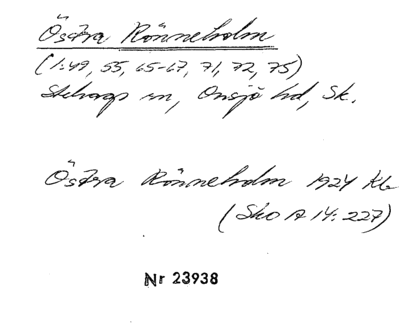 Östra Rönneholm
(1:49, 55, 65-67, 71, 72, 75)
Stehags sn, Onsjö hd, Sk.
Östra Rönneholm 1924 Kb
(Sko A 14: 227)
Nr 23938